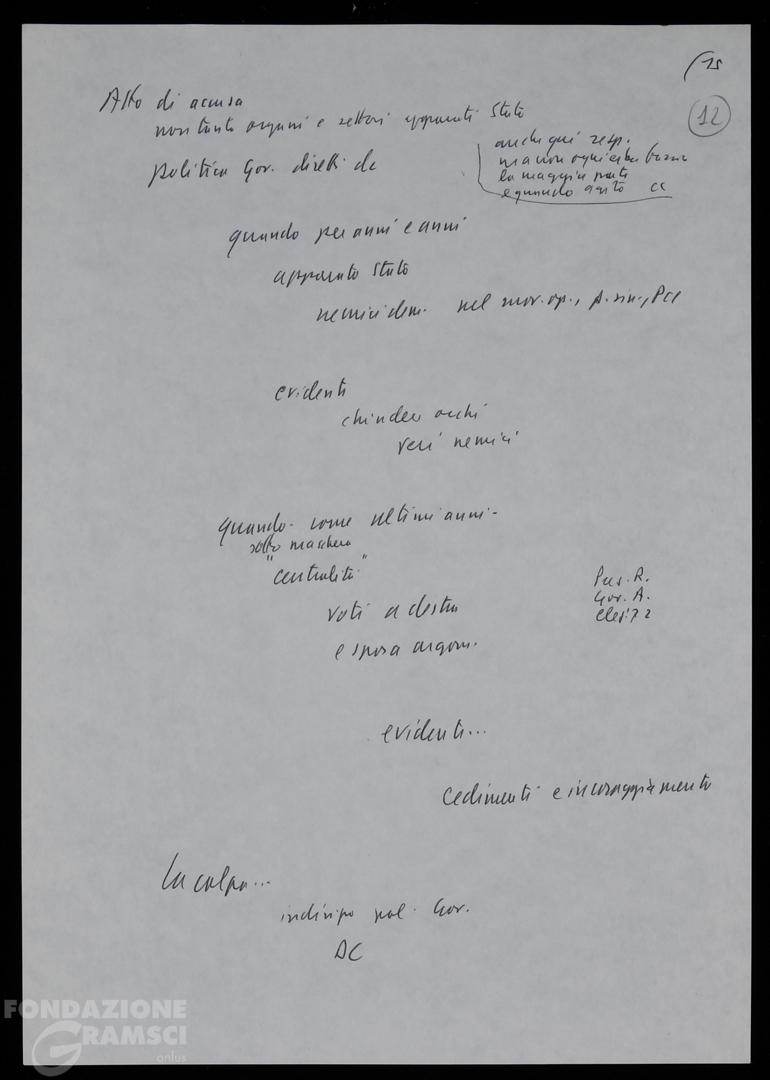 (15
12
Atto di accusa
non tanto organi e settori apparati Stato
politica Gov. diretti da
anche qui resp.
ma non ogni erba
la maggior parte
e quando agito CC
quando per anni e anni
apparato Stato
nemici dem. nel mov. op., p. sin., PCI
evidenti
chiudere occhi
veri nemici
quando - come ultimi anni -
sotto maschera
"centralità"
voti a destra
e sposa argom.
Pres. R.
Gov. A.
Elez. 72
evidenti...
cedimenti e incoraggiamento
La colpa...
indirizzo pol. Gov.
DC
FONDAZIONE
GRAMSCI
onlus